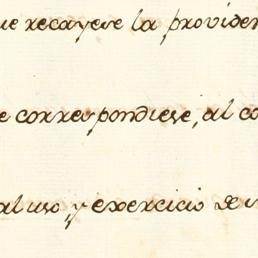 ue recayese la providen
e correspondiese, al co
al uso, y exercicio de